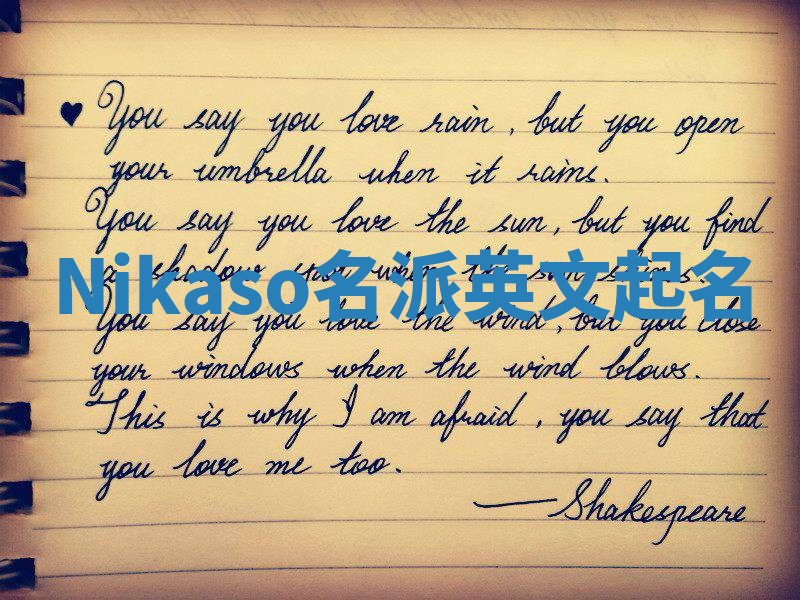 ♥ You say you love rain, but you open
your umbrella when it rains.
You say you love the sun, but you find
a shadow spot when the sun shines.
Nikaso名派英文起名
You say you love the wind, but you close
your windows when the wind blows.
This is why I am afraid, you say that
you love me too.
—Shakespeare